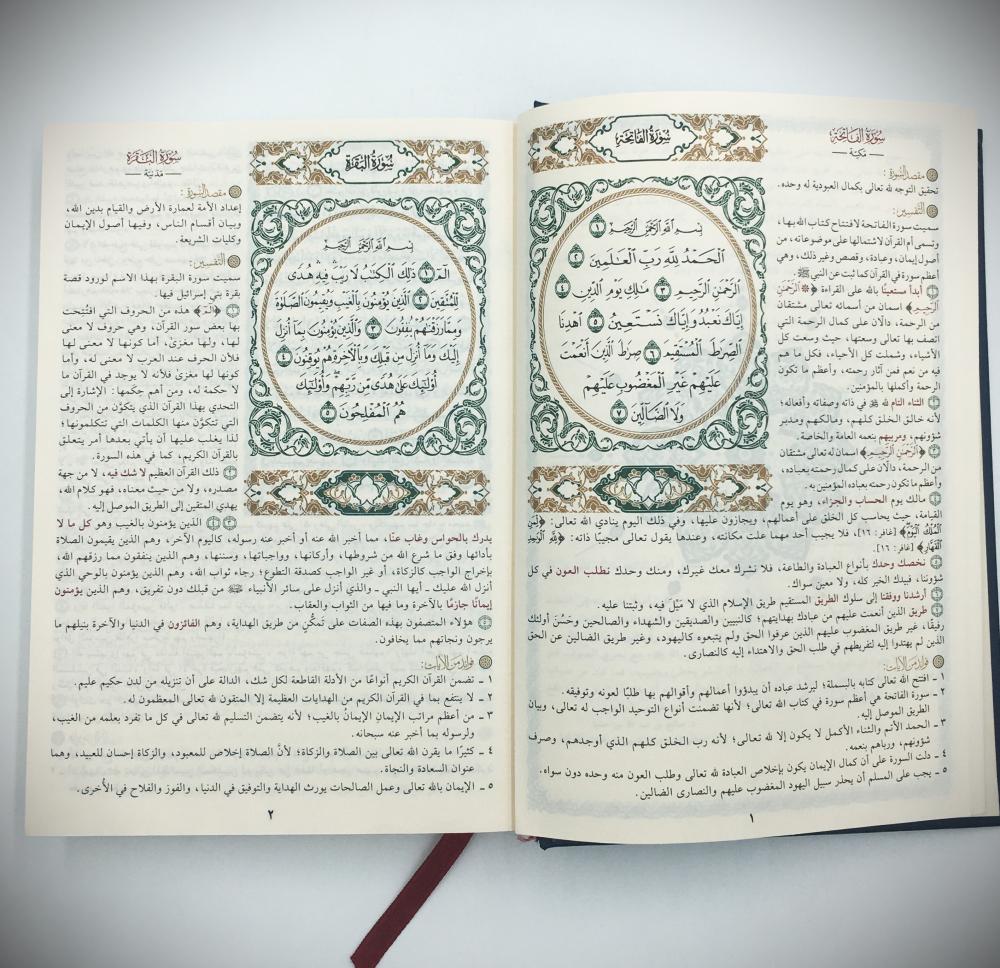 سُورَةُ الفَاتِحَةِ
سُورَةُ الفَاتِحَةِ
— مَكيّة —
بِسۡمِ ٱللَّهِ ٱلرَّحۡمَٰنِ ٱلرَّحِيمِ ١
ٱلۡحَمۡدُ لِلَّهِ رَبِّ ٱلۡعَٰلَمِينَ ٢
ٱلرَّحۡمَٰنِ ٱلرَّحِيمِ ٣ مَٰلِكِ يَوۡمِ ٱلدِّينِ ٤
إِيَّاكَ نَعۡبُدُ وَإِيَّاكَ نَسۡتَعِينُ ٥ ٱهۡدِنَا
ٱلصِّرَٰطَ ٱلۡمُسۡتَقِيمَ ٦ صِرَٰطَ ٱلَّذِينَ أَنۡعَمۡتَ
عَلَيۡهِمۡ غَيۡرِ ٱلۡمَغۡضُوبِ عَلَيۡهِمۡ
وَلَا ٱلضَّآلِّينَ ٧
مقصد السورة:
تحقيق التوجه لله تعالى بكمال العبودية له وحده.
التفسير:
سميت سورة الفاتحة لافتتاح كتاب الله بها،
وتسمى أم القرآن لاشتمالها على موضوعاته، من
أصول إيمان، وعبادة، وقصص وغير ذلك، وهي
أعظم سورة في القرآن كما ثبت عن النبي ﷺ.
١ أبدأ مستعينًا بالله على القراءة ﴿ٱلرَّحۡمَٰنِ
ٱلرَّحِيمِ﴾ اسمان من أسمائه تعالى مشتقان
من الرحمة، دالَّان على كمال الرحمة التي
اتصف بها تعالى وسعتها، حيث وسعت كل
الأشياء، وشملت كل الأحياء، فكل ما هم
فيه من نعم فمن آثار رحمته، وأعظم ما تكون
الرحمة وأكملها بالمؤمنين.
٢ الثناء التام لله في ذاته وصفاته وأفعاله؛
لأنه خالق الخلق كلهم، ومالكهم ومدبر
شؤونهم، ومربيهم بنعمه العامة والخاصة.
٣ ﴿ٱلرَّحۡمَٰنِ ٱلرَّحِيمِ﴾ اسمان له تعالى مشتقان
من الرحمة، دالَّان على كمال رحمته بعباده،
وأعظم ما تكون رحمته بعباده المؤمنين به.
٤ مالك يوم الحساب والجزاء، وهو يوم
القيامة، حيث يحاسب كل الخلق على أعمالهم، ويجازون عليها، وفي ذلك اليوم ينادي الله تعالى: ﴿لِّمَنِ
ٱلۡمُلۡكُ ٱلۡيَوۡمَ﴾ [غافر: ١٦]، فلا يجيب أحد مهما علت مكانته، وعندها يقول تعالى مجيبًا ذاته: ﴿لِلَّهِ ٱلۡوَٰحِدِ
ٱلۡقَهَّارِ﴾ [غافر: ١٦].
٥ نخصك وحدك بأنواع العبادة والطاعة، فلا نشرك معك غيرك، ومنك وحدك نطلب العون في كل
شؤوننا، فبيدك الخير كله، ولا معين سواك.
٦ أرشدنا ووفقنا إلى سلوك الطريق المستقيم طريق الإسلام الذي لا مَيْلَ فيه، وثبتنا عليه.
٧ طريق الذين أنعمت عليهم من عبادك بهدايتهم؛ كالنبيين والصديقين والشهداء والصالحين وحَسُنَ أولئك
رفيقًا، غير طريق المغضوب عليهم الذين عرفوا الحق ولم يتبعوه كاليهود، وغير طريق الضالين عن الحق
الذين لم يهتدوا إليه لتفريطهم في طلب الحق والاهتداء إليه كالنصارى.
فوائد من الآيات:
١ ـ افتتح الله تعالى كتابه بالبسملة؛ ليرشد عباده أن يبدؤوا أعمالهم وأقوالهم بها طلبًا لعونه وتوفيقه.
٢ ـ سورة الفاتحة هي أعظم سورة في كتاب الله تعالى؛ لأنها تضمنت أنواع التوحيد الواجب له تعالى، وبيان
الطريق الموصل إليه.
٣ ـ الحمد الأتم والثناء الأكمل لا يكون إلا لله تعالى؛ لأنه رب الخلق كلهم الذي أوجدهم، وصرف
شؤونهم، ورباهم بنعمه.
٤ ـ دلت السورة على أن كمال الإيمان يكون بإخلاص العبادة لله تعالى وطلب العون منه وحده دون سواه.
٥ ـ يجب على المسلم أن يحذر سبيل اليهود المغضوب عليهم والنصارى الضالين.
١
سُورَةُ البَقَرَةِ
سُورَةُ البَقَرَةِ
— مَدَنيّة —
بِسۡمِ ٱللَّهِ ٱلرَّحۡمَٰنِ ٱلرَّحِيمِ
الٓمٓ ١ ذَٰلِكَ ٱلۡكِتَٰبُ لَا رَيۡبَۛ فِيهِۛ هُدٗى
لِّلۡمُتَّقِينَ ٢ ٱلَّذِينَ يُؤۡمِنُونَ بِٱلۡغَيۡبِ وَيُقِيمُونَ ٱلصَّلَوٰةَ
وَمِمَّا رَزَقۡنَٰهُمۡ يُنفِقُونَ ٣ وَٱلَّذِينَ يُؤۡمِنُونَ بِمَآ أُنزِلَ
إِلَيۡكَ وَمَآ أُنزِلَ مِن قَبۡلِكَ وَبِٱلۡأٓخِرَةِ هُمۡ يُوقِنُونَ ٤
أُوْلَٰٓئِكَ عَلَىٰ هُدٗى مِّن رَّبِّهِمۡۖ وَأُوْلَٰٓئِكَ
هُمُ ٱلۡمُفۡلِحُونَ ٥
مقصد السورة:
إعداد الأمة لعمارة الأرض والقيام بدين الله،
وبيان أقسام الناس، وفيها أصول الإيمان
وكليات الشريعة.
التفسير:
سميت سورة البقرة بهذا الاسم لورود قصة
بقرة بني إسرائيل فيها.
١ ﴿الٓمٓ﴾ هذه من الحروف التي افتُتحت
بها بعض سور القرآن، وهي حروف لا معنى
لها، ولها مغزىً، أما كونها لا معنى لها
فلأن الحرف عند العرب لا معنى له، وأما
كونها لها مغزىً فلأنه لا يوجد في القرآن ما
لا حكمة له، ومن أهم حِكمها: الإشارة إلى
التحدي بهذا القرآن الذي يتكوَّن من الحروف
التي تتكوَّن منها الكلمات التي تتكلمونها؛
لذا يغلب عليها أن يأتي بعدها أمر يتعلق
بالقرآن الكريم، كما في هذه السورة.
٢ ذلك القرآن العظيم لا شك فيه، لا من جهة
مصدره، ولا من حيث معناه، فهو كلام الله،
يهدي المتقين إلى الطريق الموصل إليه.
٣ ٤ الذين يؤمنون بالغيب وهو كل ما لا
يدرك بالحواس وغاب عنَّا، مما أخبر الله عنه أو أخبر عنه رسوله، كاليوم الآخر، وهم الذين يقيمون الصلاة
بأدائها وفق ما شرع الله من شروطها، وأركانها، وواجباتها، وسننها، وهم الذين ينفقون مما رزقهم الله،
بإخراج الواجب كالزكاة، أو غير الواجب كصدقة التطوع؛ رجاء ثواب الله، وهم الذين يؤمنون بالوحي الذي
أنزل الله عليك ـ أيها النبي ـ والذي أنزل على سائر الأنبياء من قبلك دون تفريق، وهم الذين يؤمنون
إيمانًا جازمًا بالآخرة وما فيها من الثواب والعقاب.
٥ هؤلاء المتصفون بهذه الصفات على تَمَكُّنٍ من طريق الهداية، وهم الفائزون في الدنيا والآخرة بنيلهم ما
يرجون ونجاتهم مما يخافون.
فوائد من الآيات:
١ ـ تضمن القرآن الكريم أنواعًا من الأدلة القاطعة لكل شك، الدالة على أن تنزيله من لدن حكيم عليم.
٢ ـ لا ينتفع بما في القرآن الكريم من الهدايات العظيمة إلا المتقون لله تعالى المعظمون له.
٣ ـ من أعظم مراتب الإيمانِ الإيمانُ بالغيب؛ لأنه يتضمن التسليم لله تعالى في كل ما تفرد بعلمه من الغيب،
ولرسوله بما أخبر عنه سبحانه.
٤ ـ كثيرًا ما يقرن الله تعالى بين الصلاة والزكاة؛ لأنَّ الصلاة إخلاص للمعبود، والزكاة إحسان للعبيد، وهما
عنوان السعادة والنجاة.
٥ ـ الإيمان بالله تعالى وعمل الصالحات يورث الهداية والتوفيق في الدنيا، والفوز والفلاح في الأُخرى.
٢